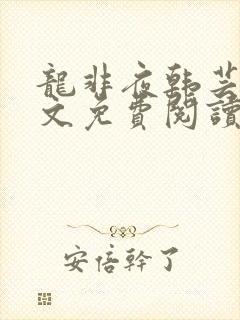 龍非夜韓芸
文免費閱讀
安倍幹了